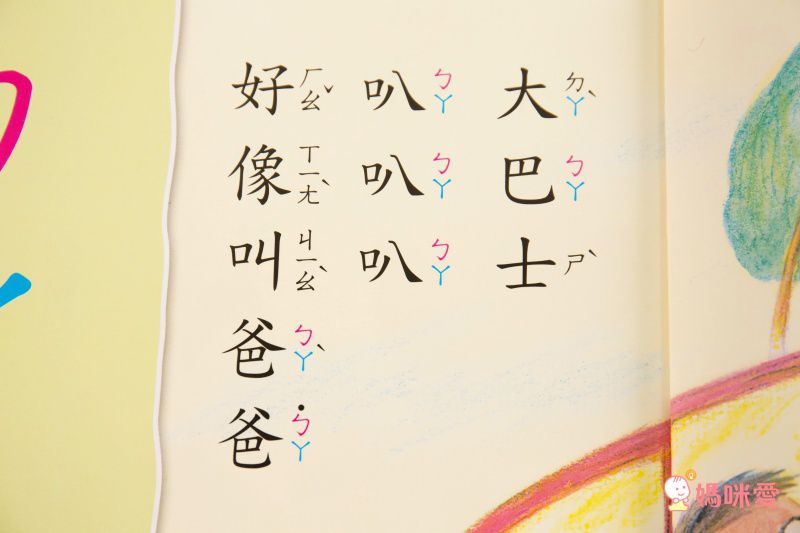 大ㄉㄚˋ巴ㄅㄚ士ㄕˋ
叭ㄅㄚ叭ㄅㄚ叭ㄅㄚ
好ㄏㄠˇ像ㄒㄧㄤˋ叫ㄐㄧㄠˋ爸ㄅㄚˋ爸˙ㄅㄚ
媽咪愛